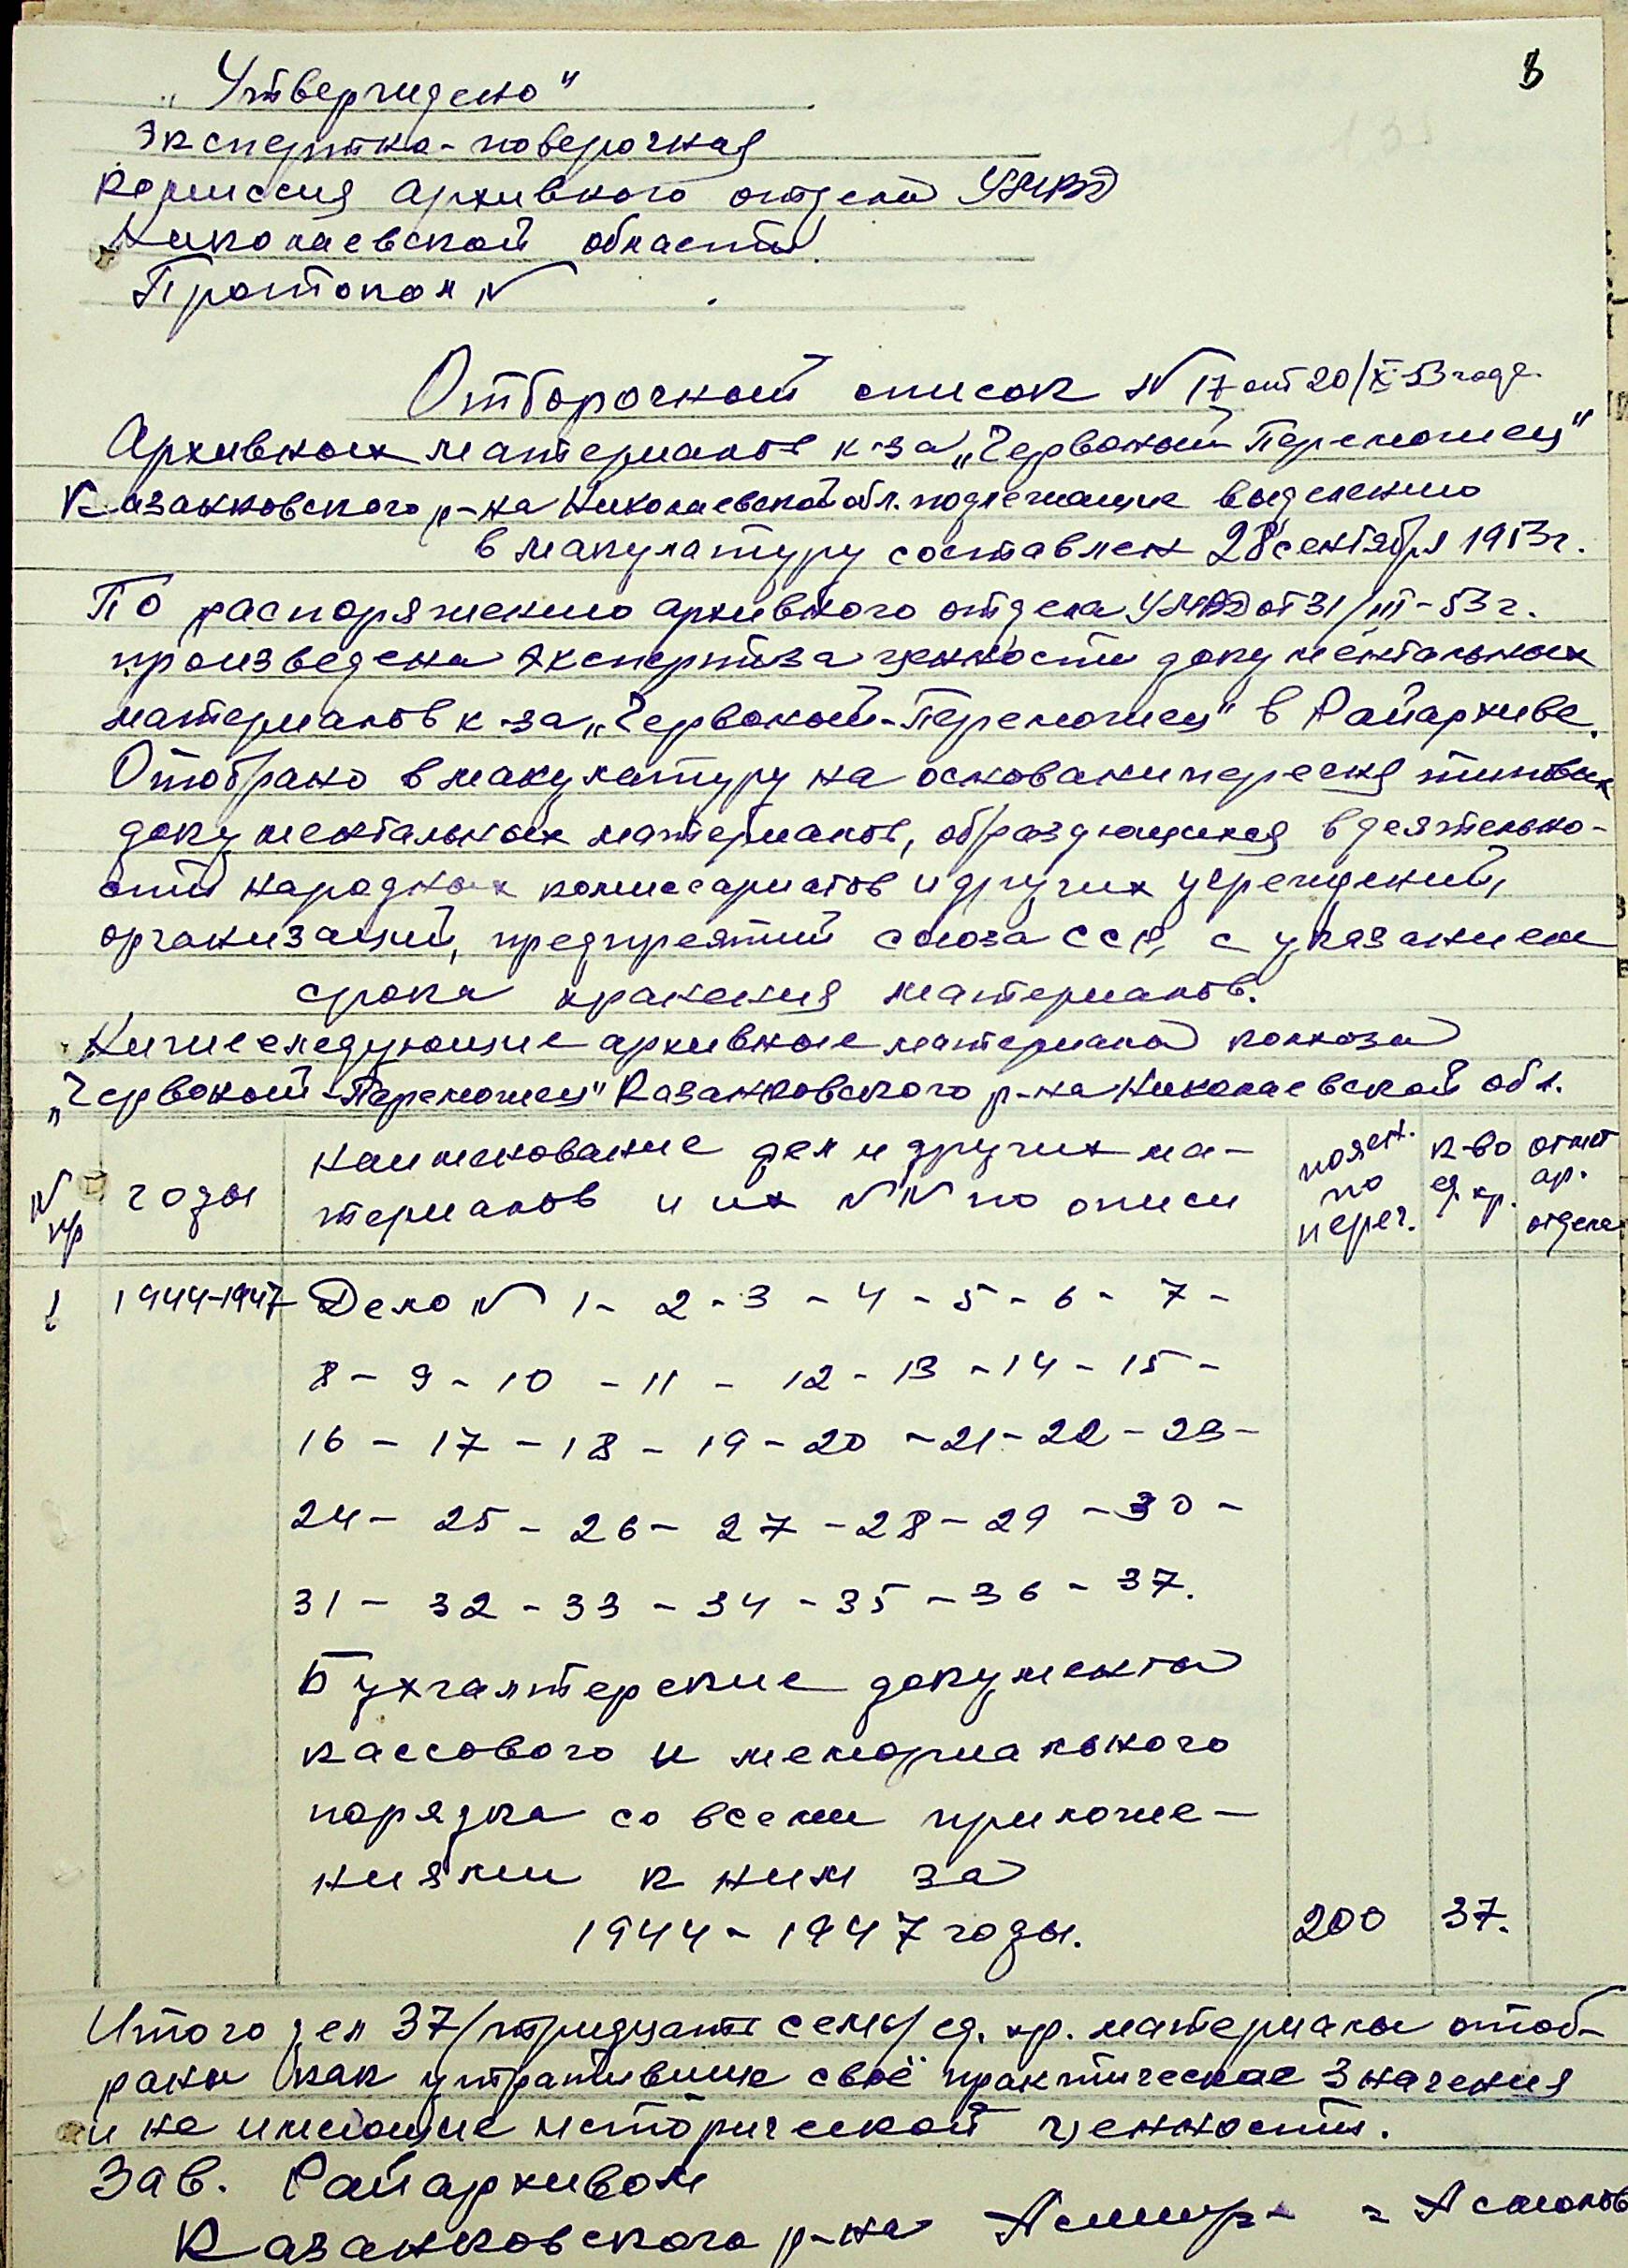 8
„Утверждено"
Экспертно-поверочная
комиссия архивного отдела УМВД
Николаевской области
Протокол №
Отборочный список № 17 от 20/X-53 года.
Архивных материалов к-за „Червоный Переможец"
Казанковского р-на Николаевской обл. подлежащие выделению
в макулатуру составлен 28 сентября 1953 г.
По распоряжению архивного отдела УМВД от 31/III-53 г.
произведена экспертиза ценности документальных
материалов к-за „Червоный-Переможец" в Райархиве.
Отобрано в макулатуру на основани переčня типовых
документальных материалов, образующихся в деятельно-
сти народных комиссариатов и других учреждений,
организаций, предпреятий союза ССР, с указанием
срока хранения материалов.
Нижеследующие архивные материалы колхоза
„Червоный-Переможец" Казанковского р-на Николаевской обл.
№ п/р | годы | наименование дел и других ма- | поясн. | к-во | отмет
териалов и их №№ по описи | по | ед. хр. | ар.
переч. | отдела
1 1944-1947 Дело № 1- 2 - 3 - 4 - 5 - 6 - 7 -
8 - 9 - 10 - 11 - 12 - 13 - 14 - 15 -
16 - 17 - 18 - 19 - 20 - 21 - 22 - 23 -
24 - 25 - 26 - 27 - 28 - 29 - 30 -
31 - 32 - 33 - 34 - 35 - 36 - 37.
Бухгалтерские документы
кассового и мемориального
порядка со всеми приложе-
ниями к ним за
1944 - 1947 годы. 200 37.
Итого дел 37/тридцать семь/ ед. хр. материалы отоб-
раны как утратившие своё практическое значения
и не имеющие исторической ценности.
Зав. Райархивом
Казанковского р-на